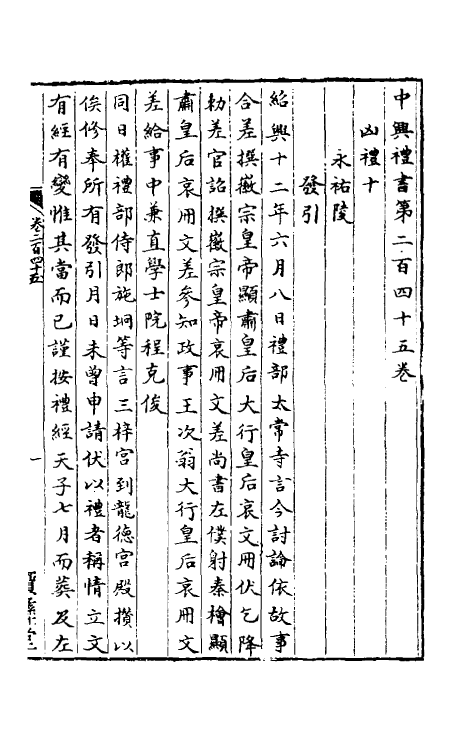 中興禮書第二百四十五卷
凶禮十
永祐陵
發引
紹興十二年六月八日禮部太常寺言今討論依故事
合差撰徽宗皇帝顯肅皇后大行皇后哀文冊伏乞降
勅差官詔撰徽宗皇帝哀冊文差尚書左僕射秦檜顯
肅皇后哀冊文差參知政事王次翁大行皇后哀冊文
差給事中兼直學士院程克俊
同日權禮部侍郎施坰等言三梓宮到龍德宮殿攢以
俟修奉所有發引月日未曾申請伏以禮者稱情立文
有經有變惟其當而已謹按禮經天子七月而葬及左
卷二百四十五
一